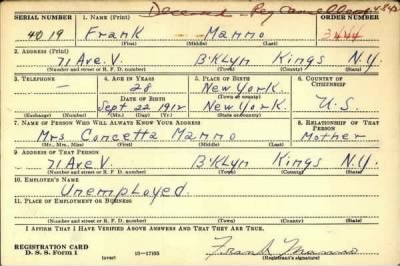 SERIAL NUMBER 1. NAME (Print) Deceased Reg Cancelled ORDER NUMBER
4019 Frank Manno 3444
(First) (Middle) (Last)
2. ADDRESS (Print)
71 Ave. V. B'KLyn Kings N.Y.
(Number and street or R. F. D. number) (Town) (County) (State)
3. TELEPHONE 4. AGE IN YEARS 5. PLACE OF BIRTH 6. COUNTRY OF CITIZENSHIP
— 28 New York.
DATE OF BIRTH (Town or county)
Sept 22 1912 New York. U.S.
(Exchange) (Number) (Mo.) (Day) (Yr.) (State or country)
7. NAME OF PERSON WHO WILL ALWAYS KNOW YOUR ADDRESS 8. RELATIONSHIP OF THAT PERSON
Mrs Concetta Manno Mother
(Mr., Mrs., Miss) (First) (Middle) (Last)
9. ADDRESS OF THAT PERSON
71 Ave V. B'KLyn Kings N.Y.
(Number and street or R. F. D. number) (Town) (County) (State)
10. EMPLOYER'S NAME
Unemployed
11. PLACE OF EMPLOYMENT OR BUSINESS
(Number and street or R. F. D. number) (Town) (County) (State)
I AFFIRM THAT I HAVE VERIFIED ABOVE ANSWERS AND THAT THEY ARE TRUE.
REGISTRATION CARD
D. S. S. Form 1 (over) 16—17105 Frank Manno
(Registrant's signature)